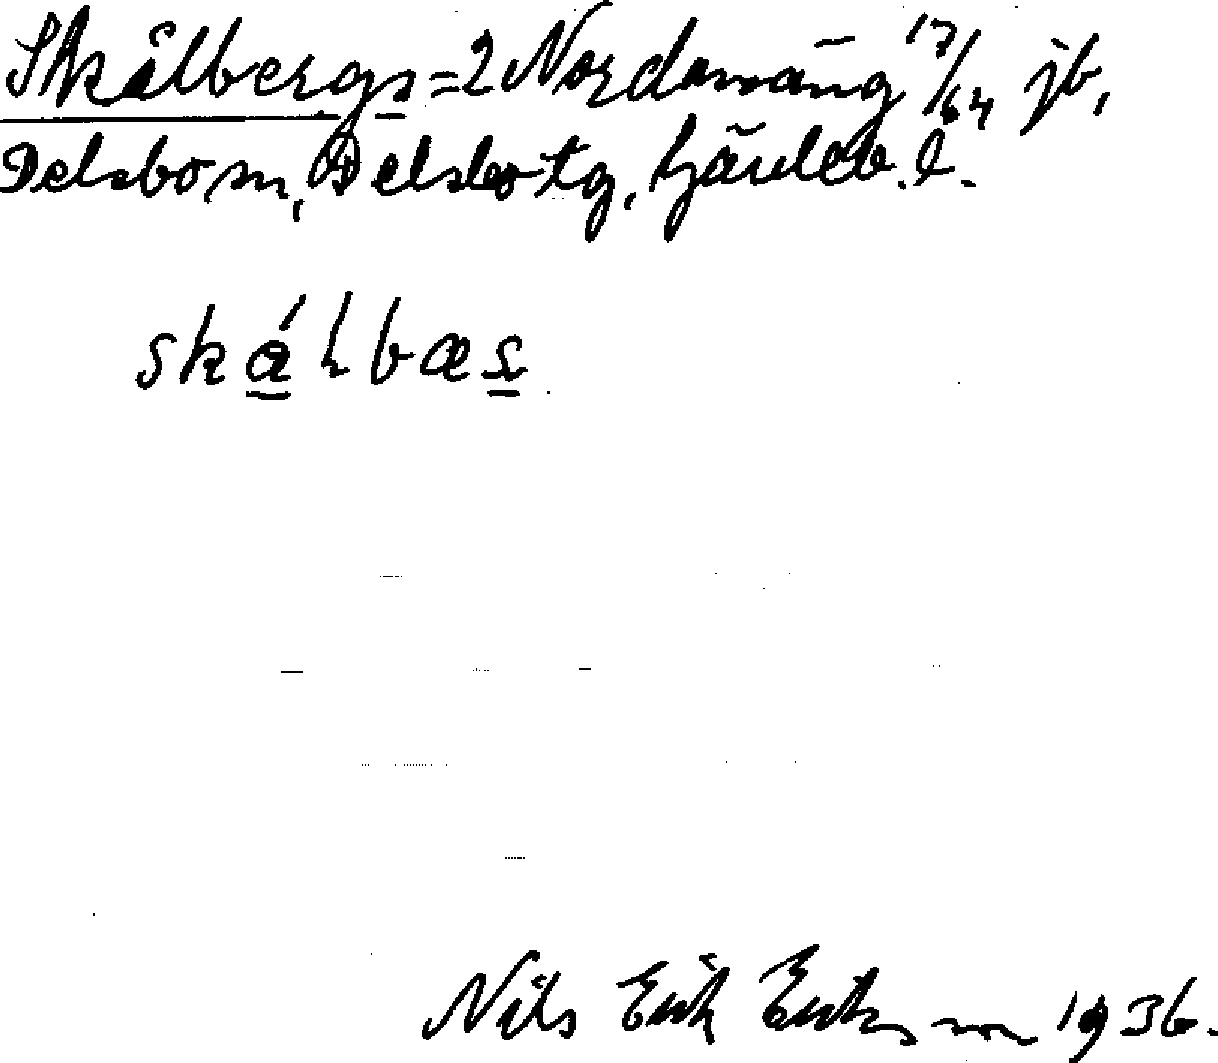 Skålbergs = 2 Nordanäng 17/64 jb,
Delsbo sn, Delsbo tg, Gävleb. l.
skálbæs
Nils Erik Eriksson 1936.